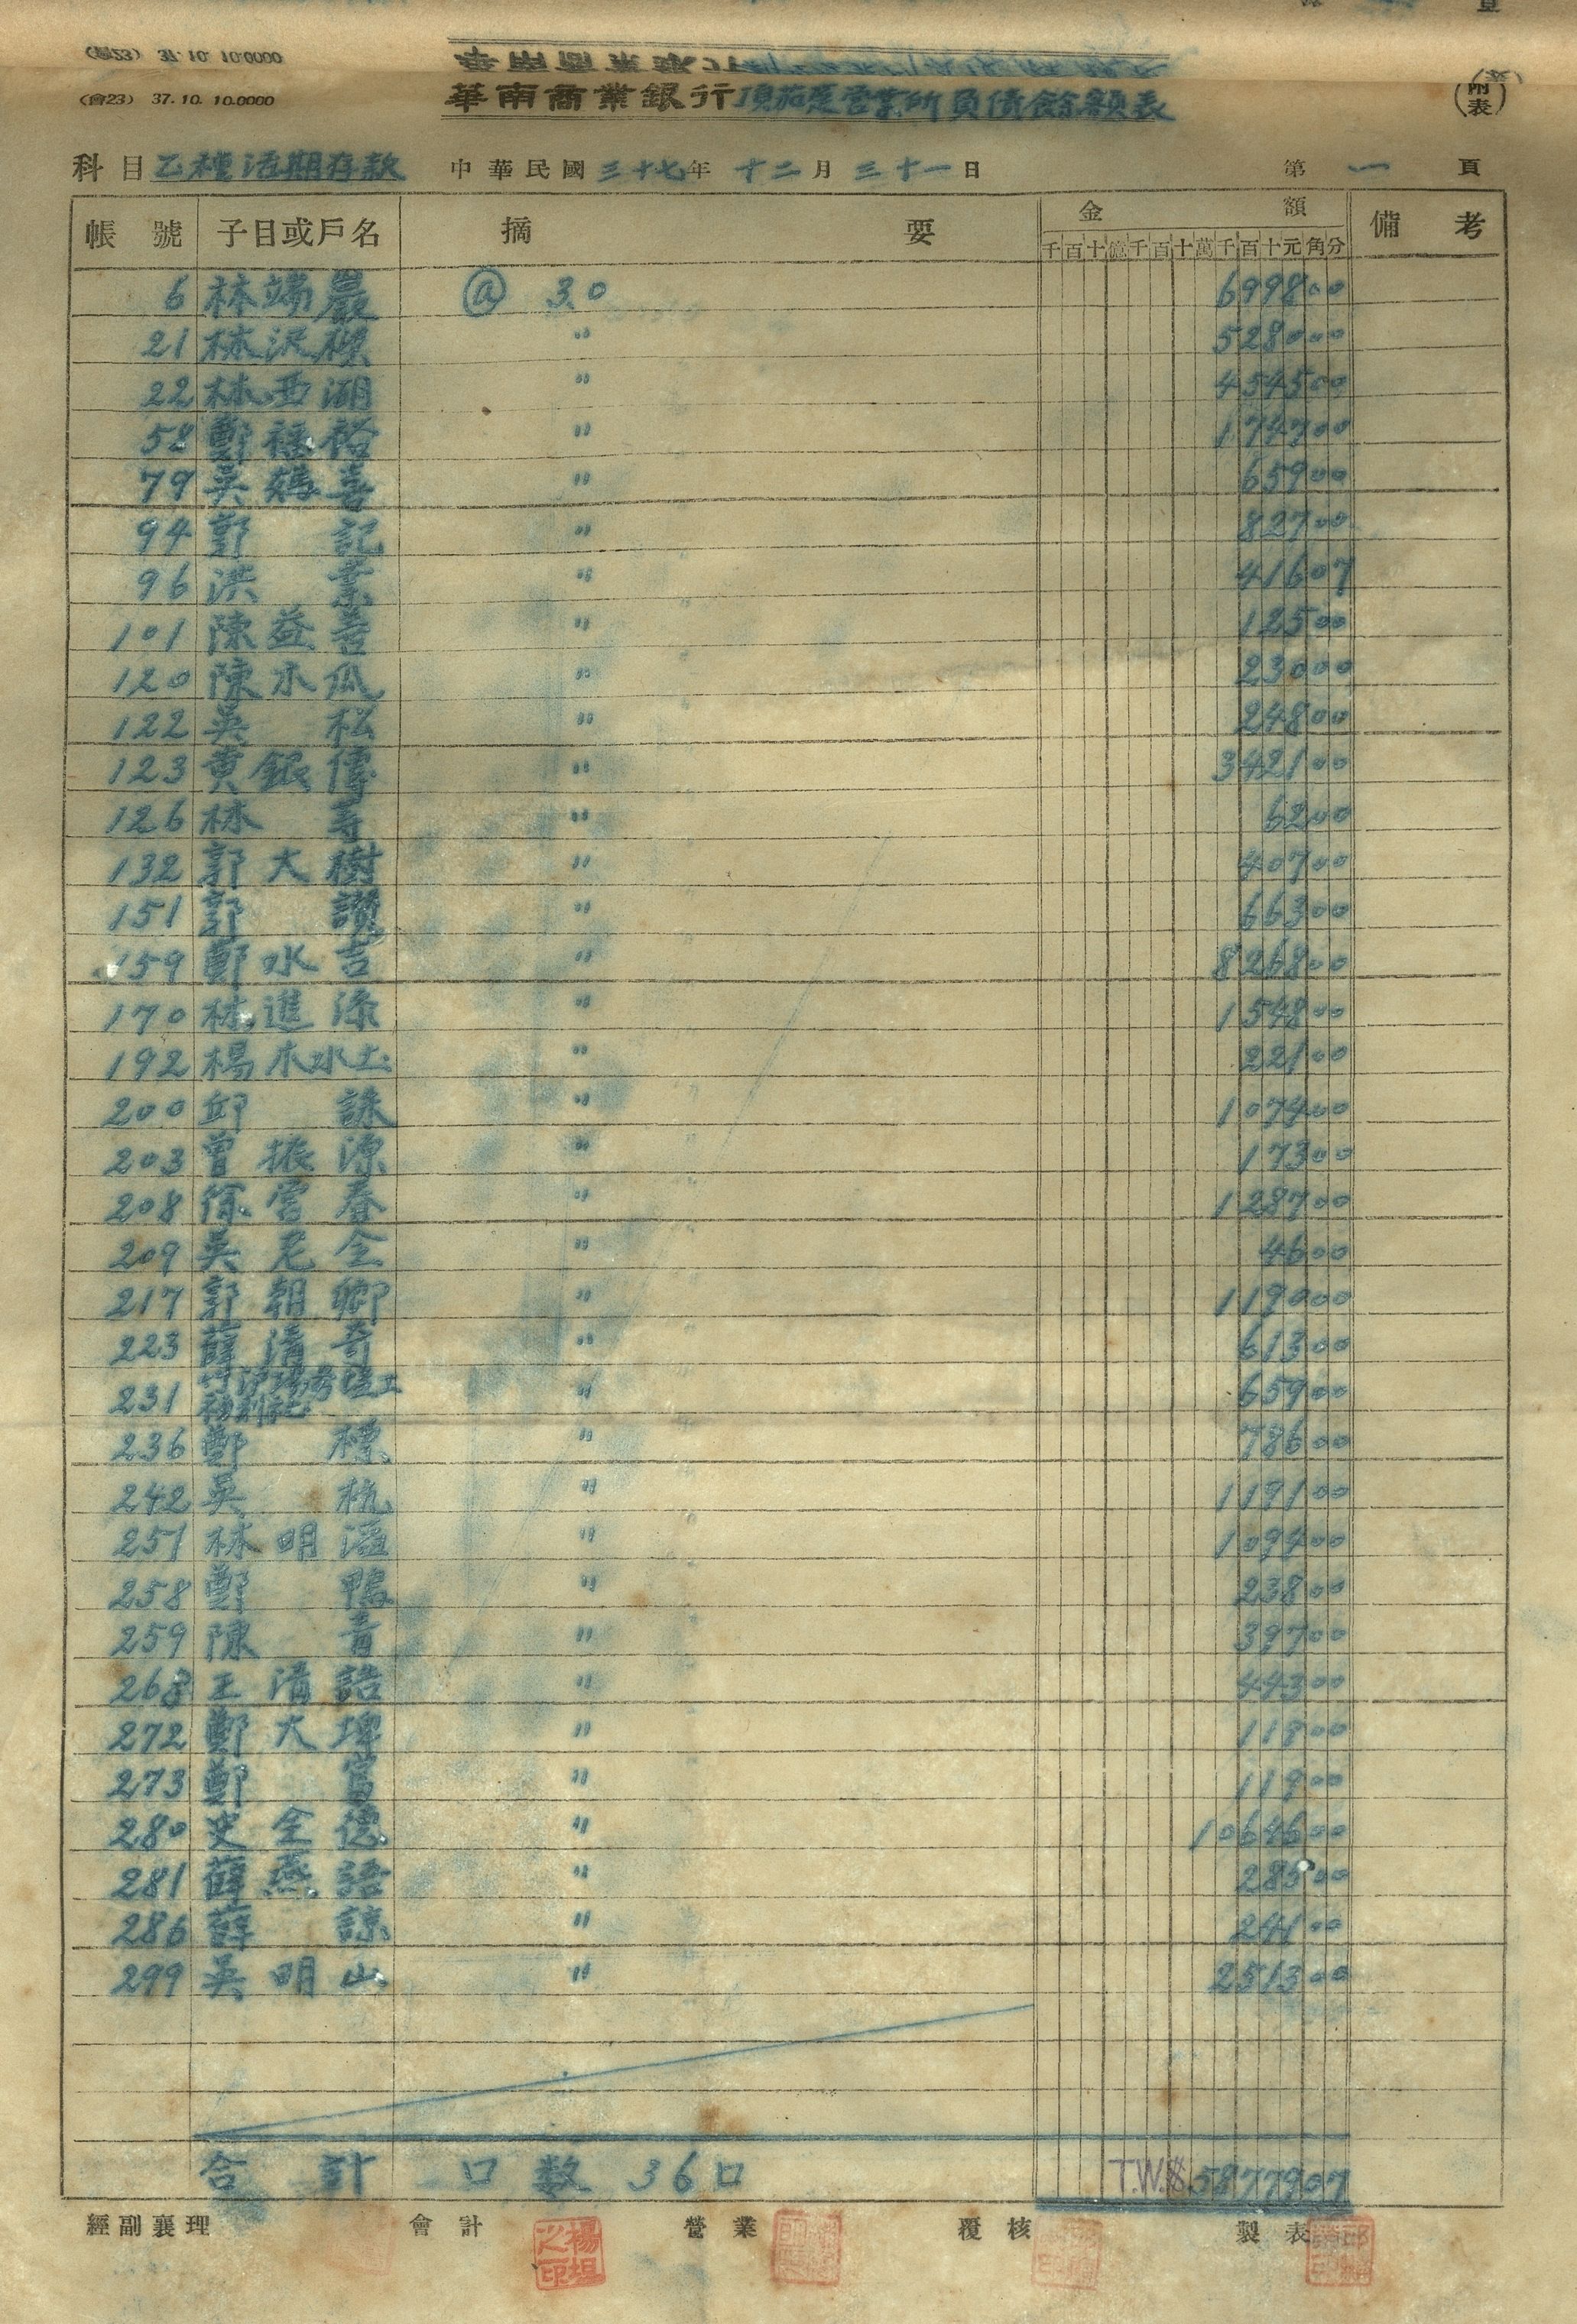 (會23) 37. 10. 10.0000
華南商業銀行
(會23) 37. 10. 10.0000
華南商業銀行頂茄萣營業所負債餘額表
(附表)
科目 乙種活期存款 中華民國三十七年十二月三十一日 第一頁
帳號 子目或戶名 摘要 金額 備考
千百十億千百十萬千百十元角分
6 林端嚴 @ 30 6998 00
21 林 " 5280 00
22 林西湖 " 4545 00
58 鄭福裕 " 1747 00
79 吳鵝喜 " 659 00
94 郭記 " 827 00
96 洪 " 416 07
101 陳益善 " 125 00
120 陳木瓜 " 230 00
122 吳松 " 248 00
123 黃銀傳 " 3421 00
126 林等 " 62 00
132 郭大樹 " 407 00
151 郭讚 " 663 00
159 鄭水吉 " 8268 00
170 林進添 " 1548 00
192 楊木水土 " 221 00
200 邱 " 1074 00
203 曾振源 " 173 00
208 徐營春 " 1287 00
209 吳老全 " 46 00
217 郭朝卿 " 1190 00
223 薛清奇 " 613 00
231 福利 " 659 00
236 鄭標 " 786 00
242 吳杭 " 1191 00
251 林明溫 " 1094 00
258 鄭鴨 " 238 00
259 陳青 " 397 00
268 王清語 " 443 00
272 鄭大埤 " 118 00
273 鄭 " 119 00
280 史全德 " 10646 00
281 薛燕語 " 285 00
286 薛諒 " 241 00
299 吳明山 " 2513 00
合計 口數 36口 T.W.$ 58779 07
經副襄理 會計 營業 覆核 製表
楊坦之印